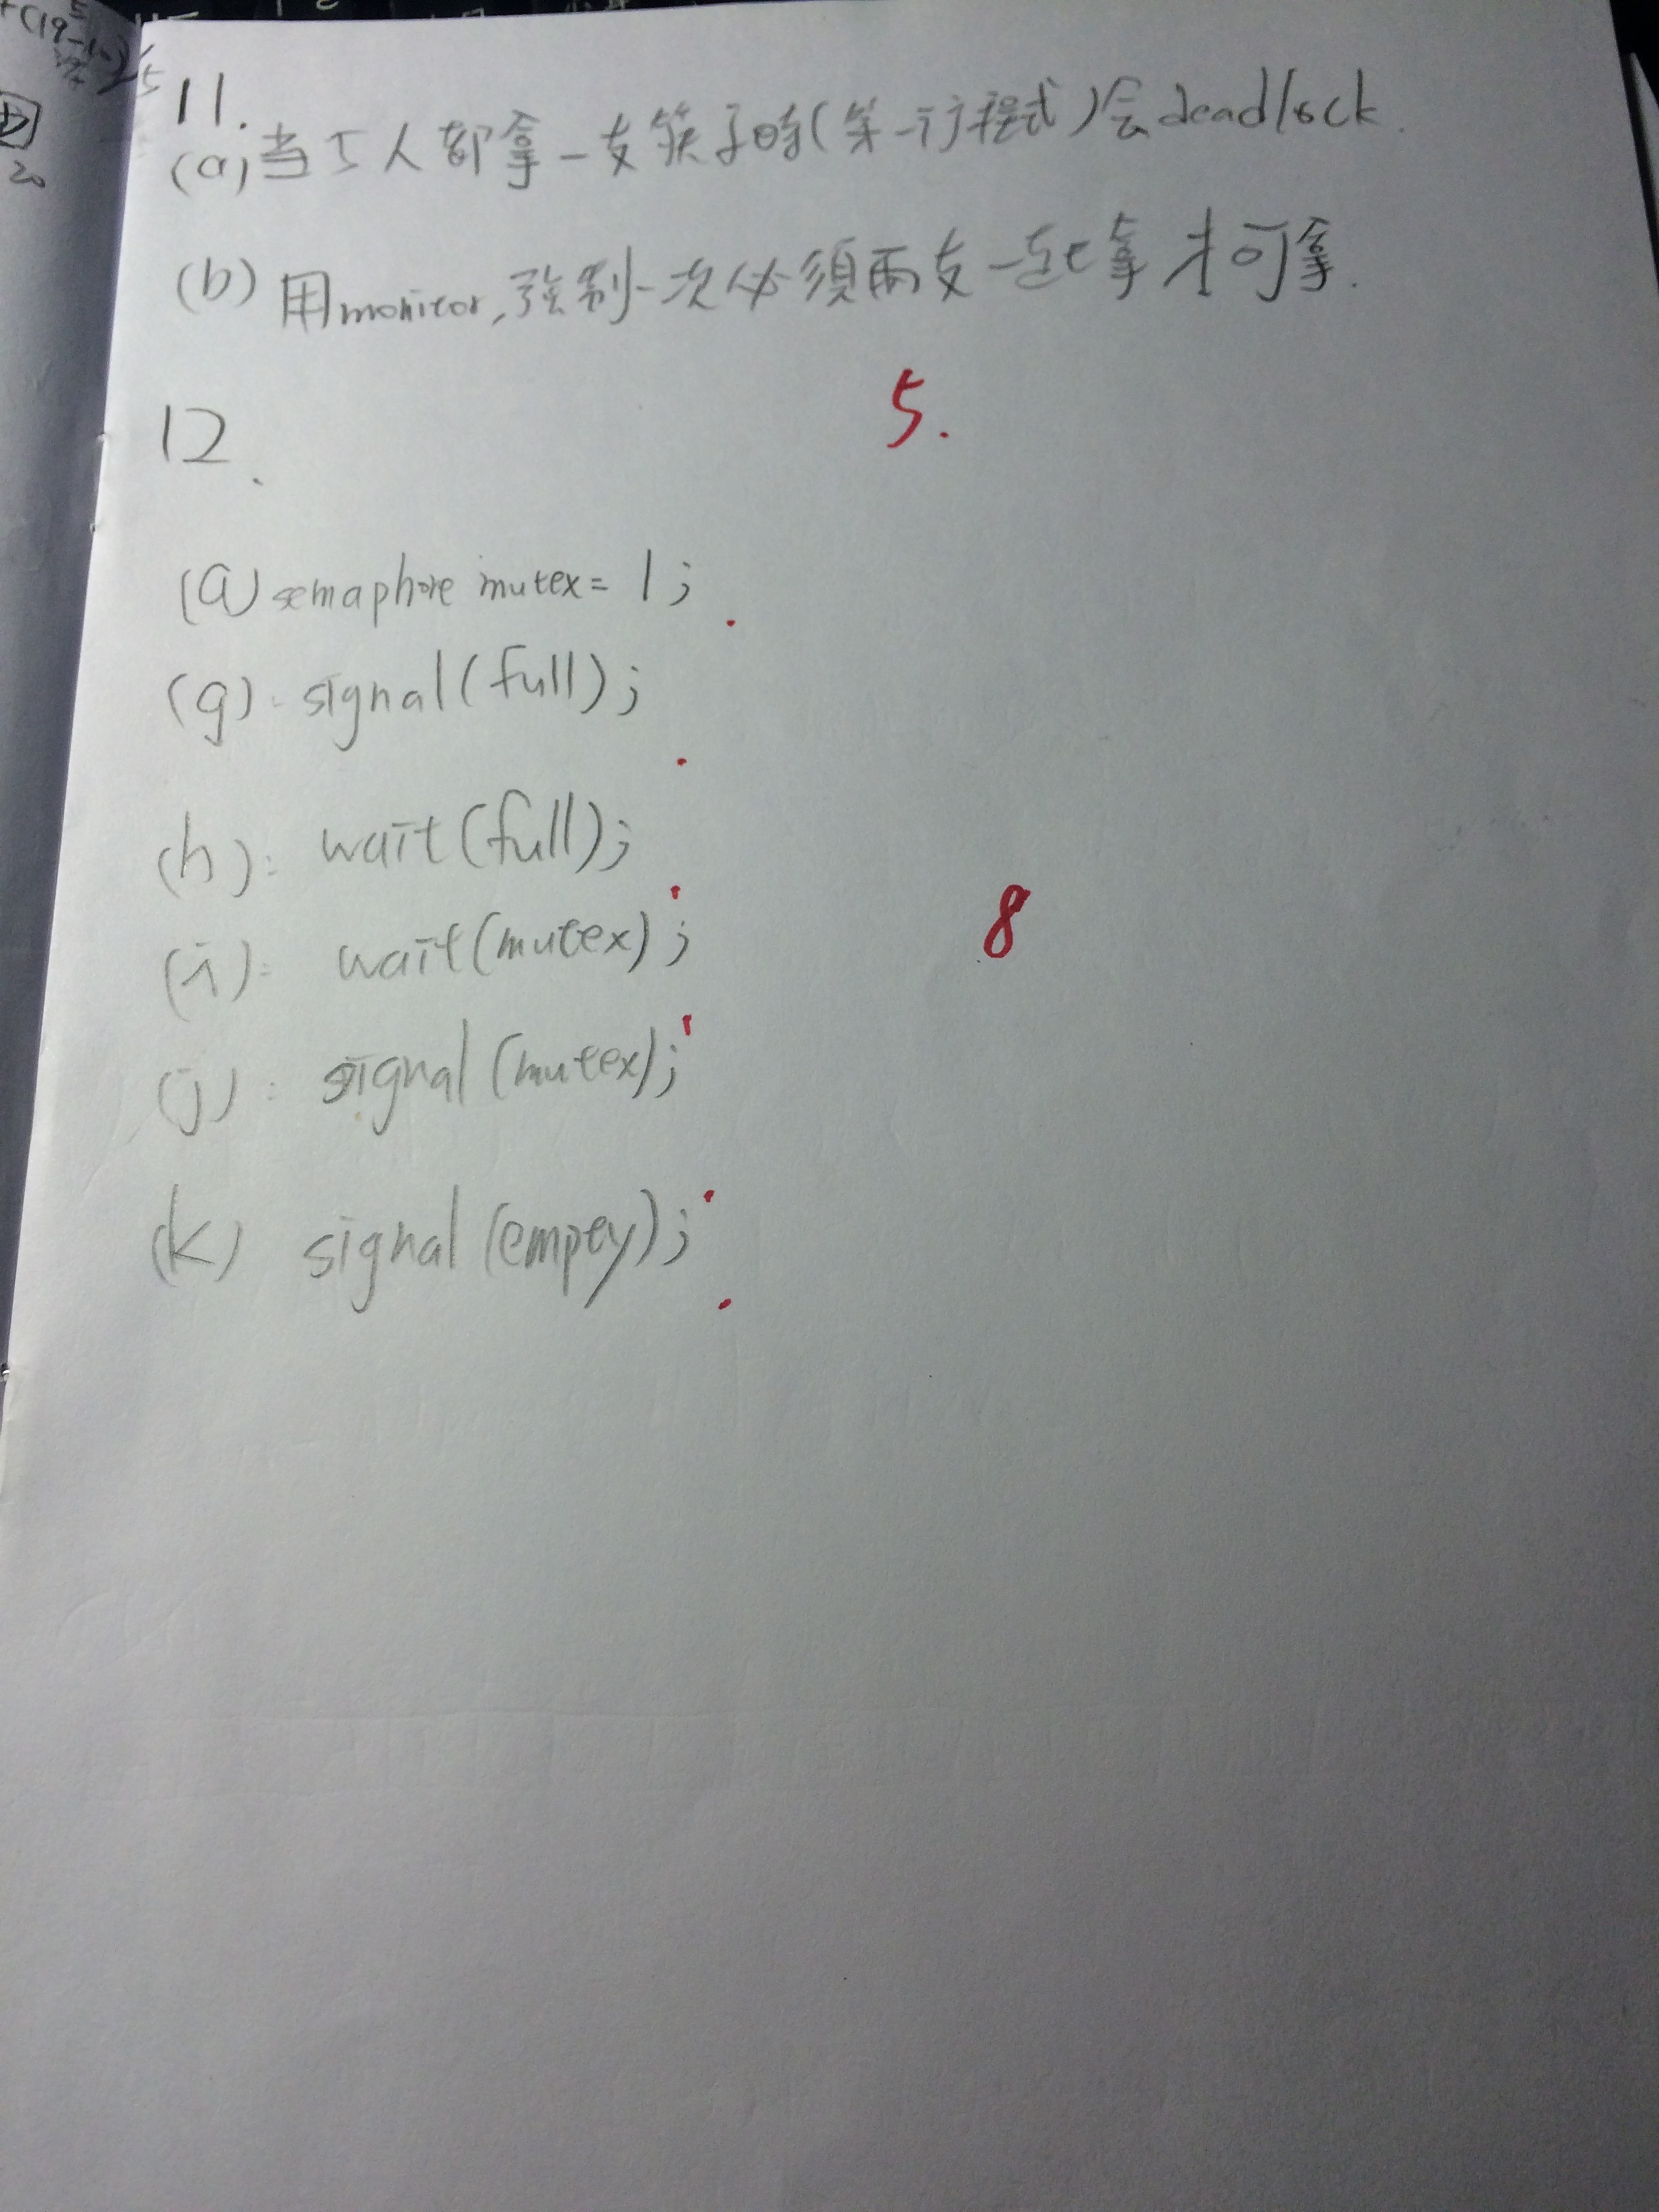 +(19-1-
5
20
11.
(a) 当5人都拿一支筷子時(第一行程式)会deadlock.
(b) 用monitor,強制一次必須兩支一起拿才可拿.
5.
12.
(a) semaphore mutex = 1;
(g): signal(full);
(h): wait(full);
(i): wait(mutex);
8
(j): signal(mutex);
(k) signal(empty);